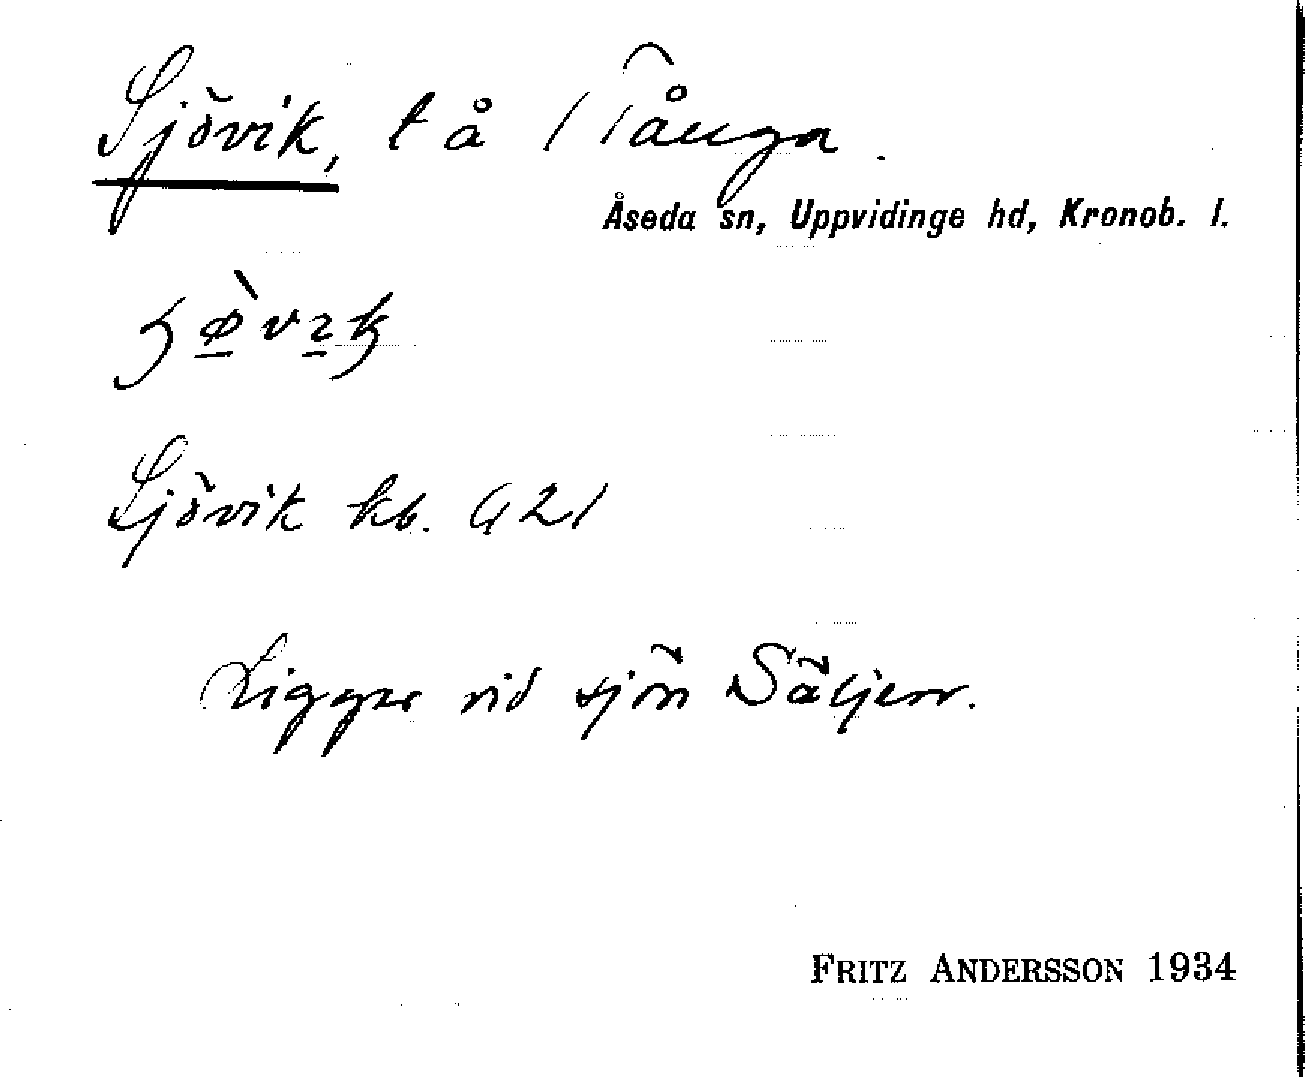 Sjövik, t å 1 Tånga.
Åseda sn, Uppvidinge hd, Kronob. l.
Sjövik kb. G 21
Ligger vid sjön Säljen.
FRITZ ANDERSSON 1934